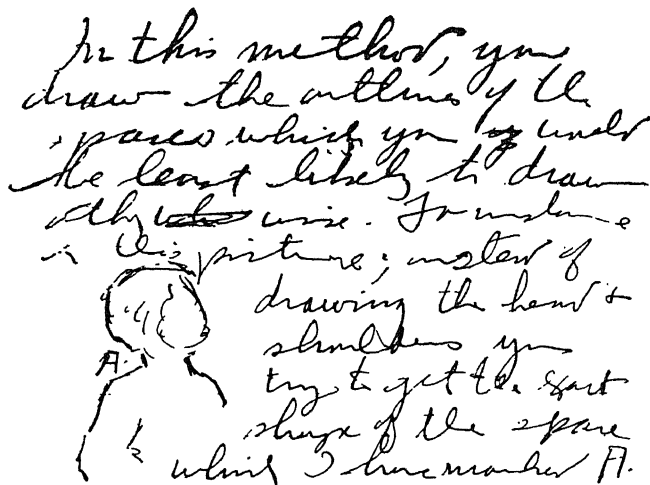 In this method, you
draw the outlines of the
spaces which you would
be least likely to draw
otherwise. For instance
in this picture; instead of
drawing the head &
shoulders you
A.
try to get the exact
shape of the space
which I have marked A.